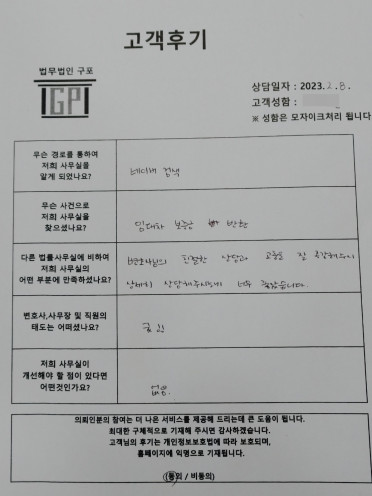 고객후기
법무법인 구포
GP
상담일자 : 2023. 2. 8.
고객성함 :
※ 성함은 모자이크처리 됩니다
무슨 경로를 통하여
저희 사무실을
알게 되었나요?
네이버 검색
무슨 사건으로
저희 사무실을
찾으셨나요?
임대차 보증금 반환
다른 법률사무실에 비하여
저희 사무실의
어떤 부분에 만족하셨나요?
변호사님의 친절한 상담과 고충도 잘
상담해주셔서 너무 좋았습니다.
변호사,사무장 및 직원의
태도는 어떠셨나요?
굿
저희 사무실이
개선해야 할 점이 있다면
어떤것인가요?
없음.
의뢰인분의 참여는 더 나은 서비스를 제공해 드리는데 큰 도움이 됩니다.
최대한 구체적으로 기재해 주시면 감사하겠습니다.
고객님의 후기는 개인정보보호법에 따라 보호되며,
홈페이지에 익명으로 기재됩니다.
(동의 / 비동의)